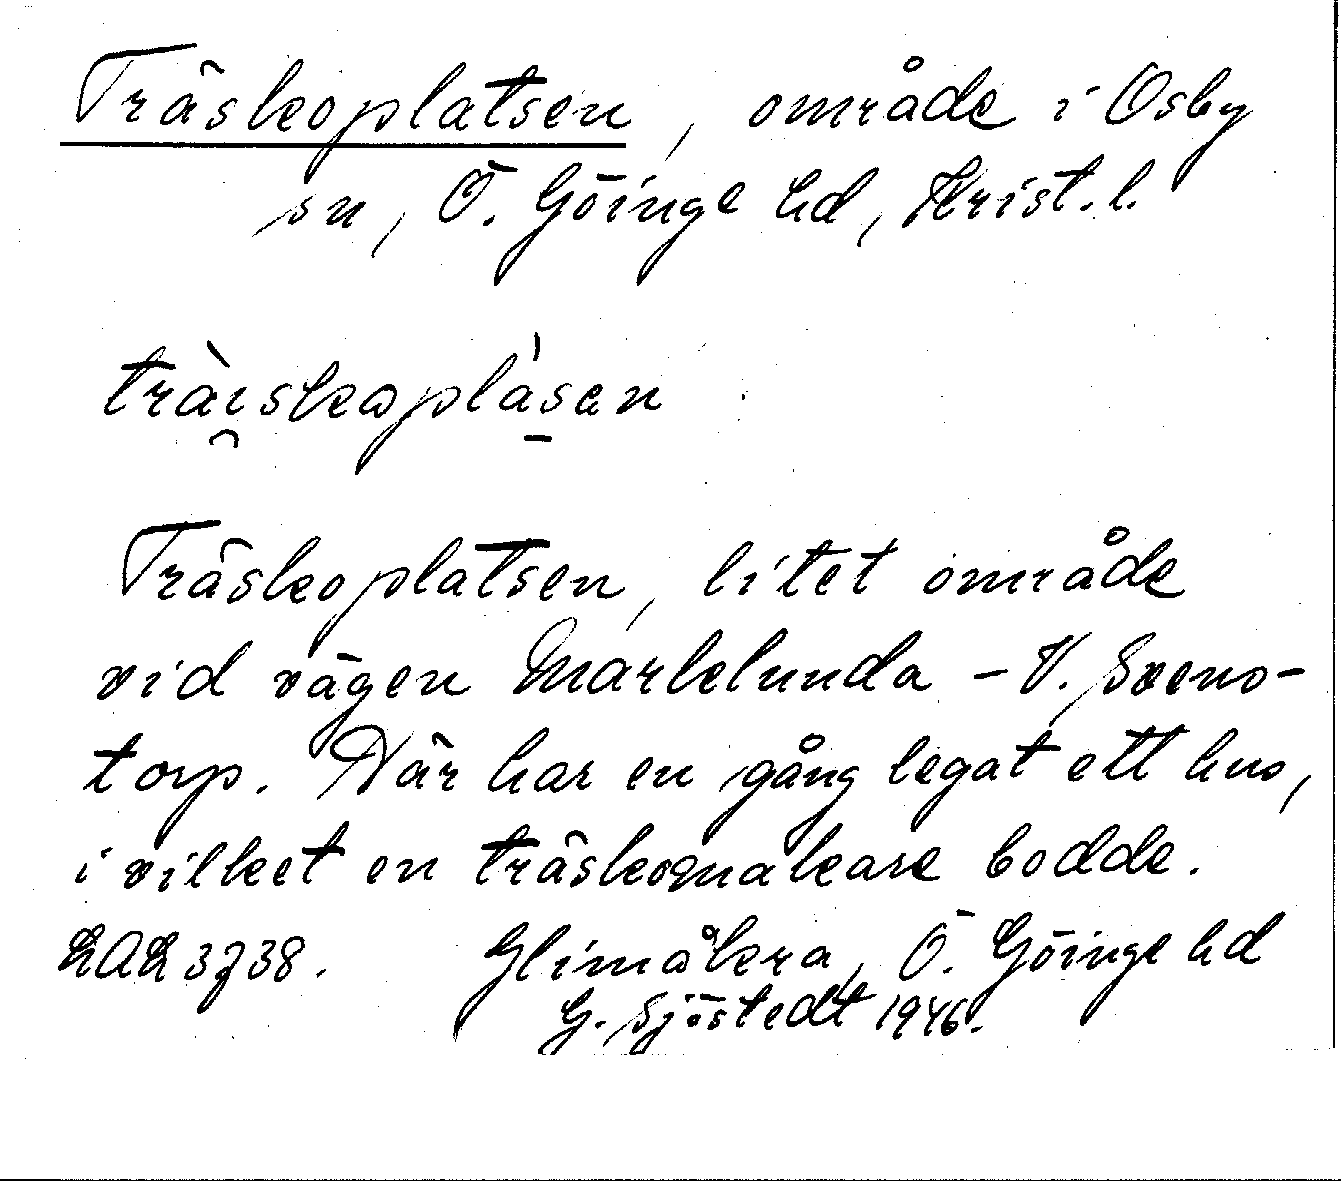 Träskoplatsen, område i Osby
sn, Ö. Göinge hd, Krist. l.
träiskoplàsen
Träskoplatsen, litet område
vid vägen Marklunda - V. Svens-
torp. Där har en gång legat ett hus,
i vilket en träskomakare bodde.
LAL 3738. Glimåkra, Ö. Göinge hd
G. Sjöstedt 1946.